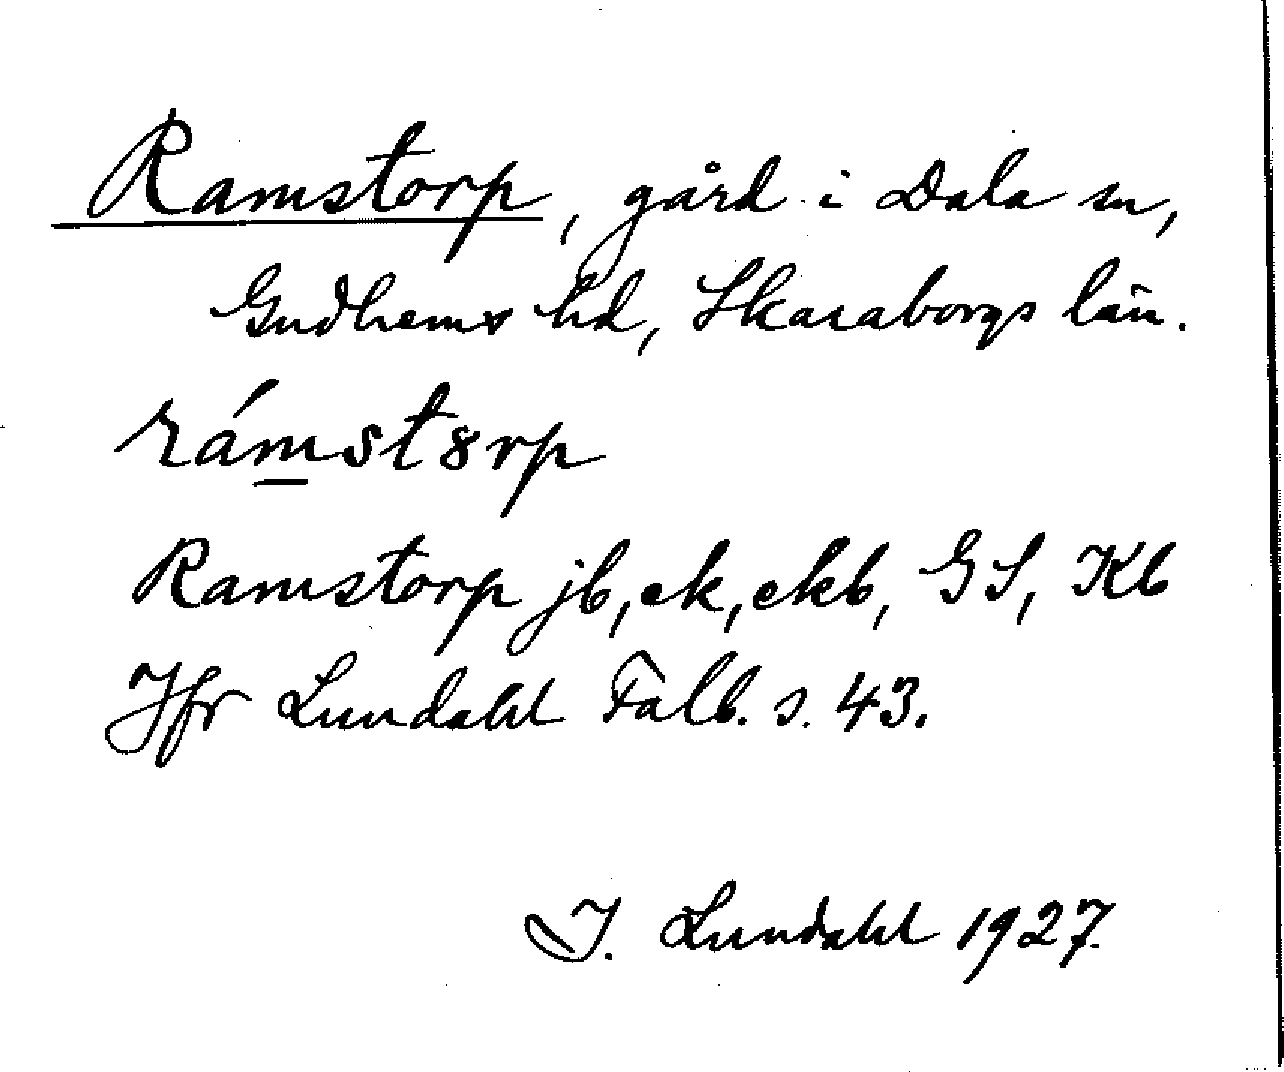 Ramstorp, gård i Dala sn,
Gudhems hd, Skaraborgs län.
rámst8rp
Ramstorp jb, ek, ekb, GS, Kb
Jfr Lundahl Falb. s. 43.
I. Lundahl 1927.